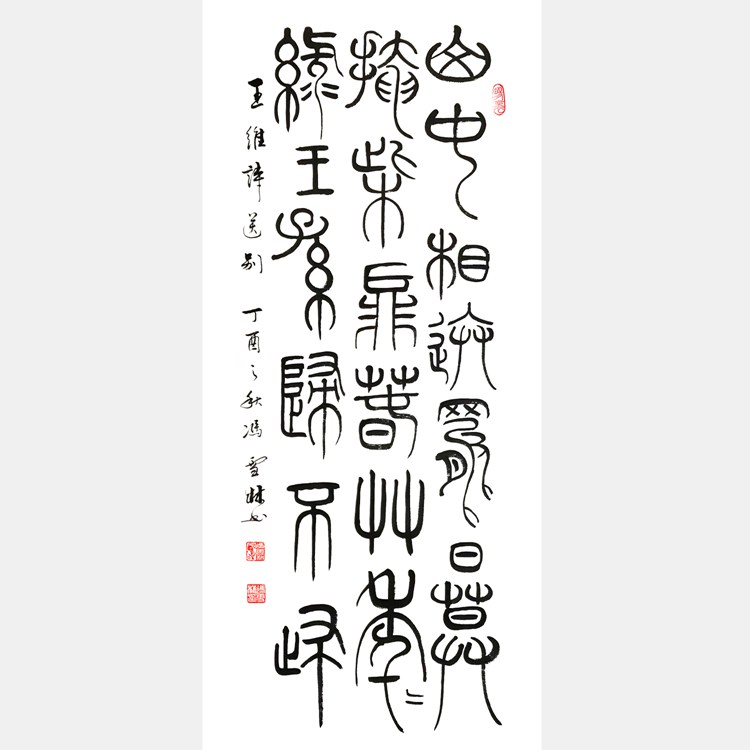 山中相送罷日暮
掩柴扉春草年〻
綠王孫歸不歸
王維詩送別 丁酉之秋馮雪林书